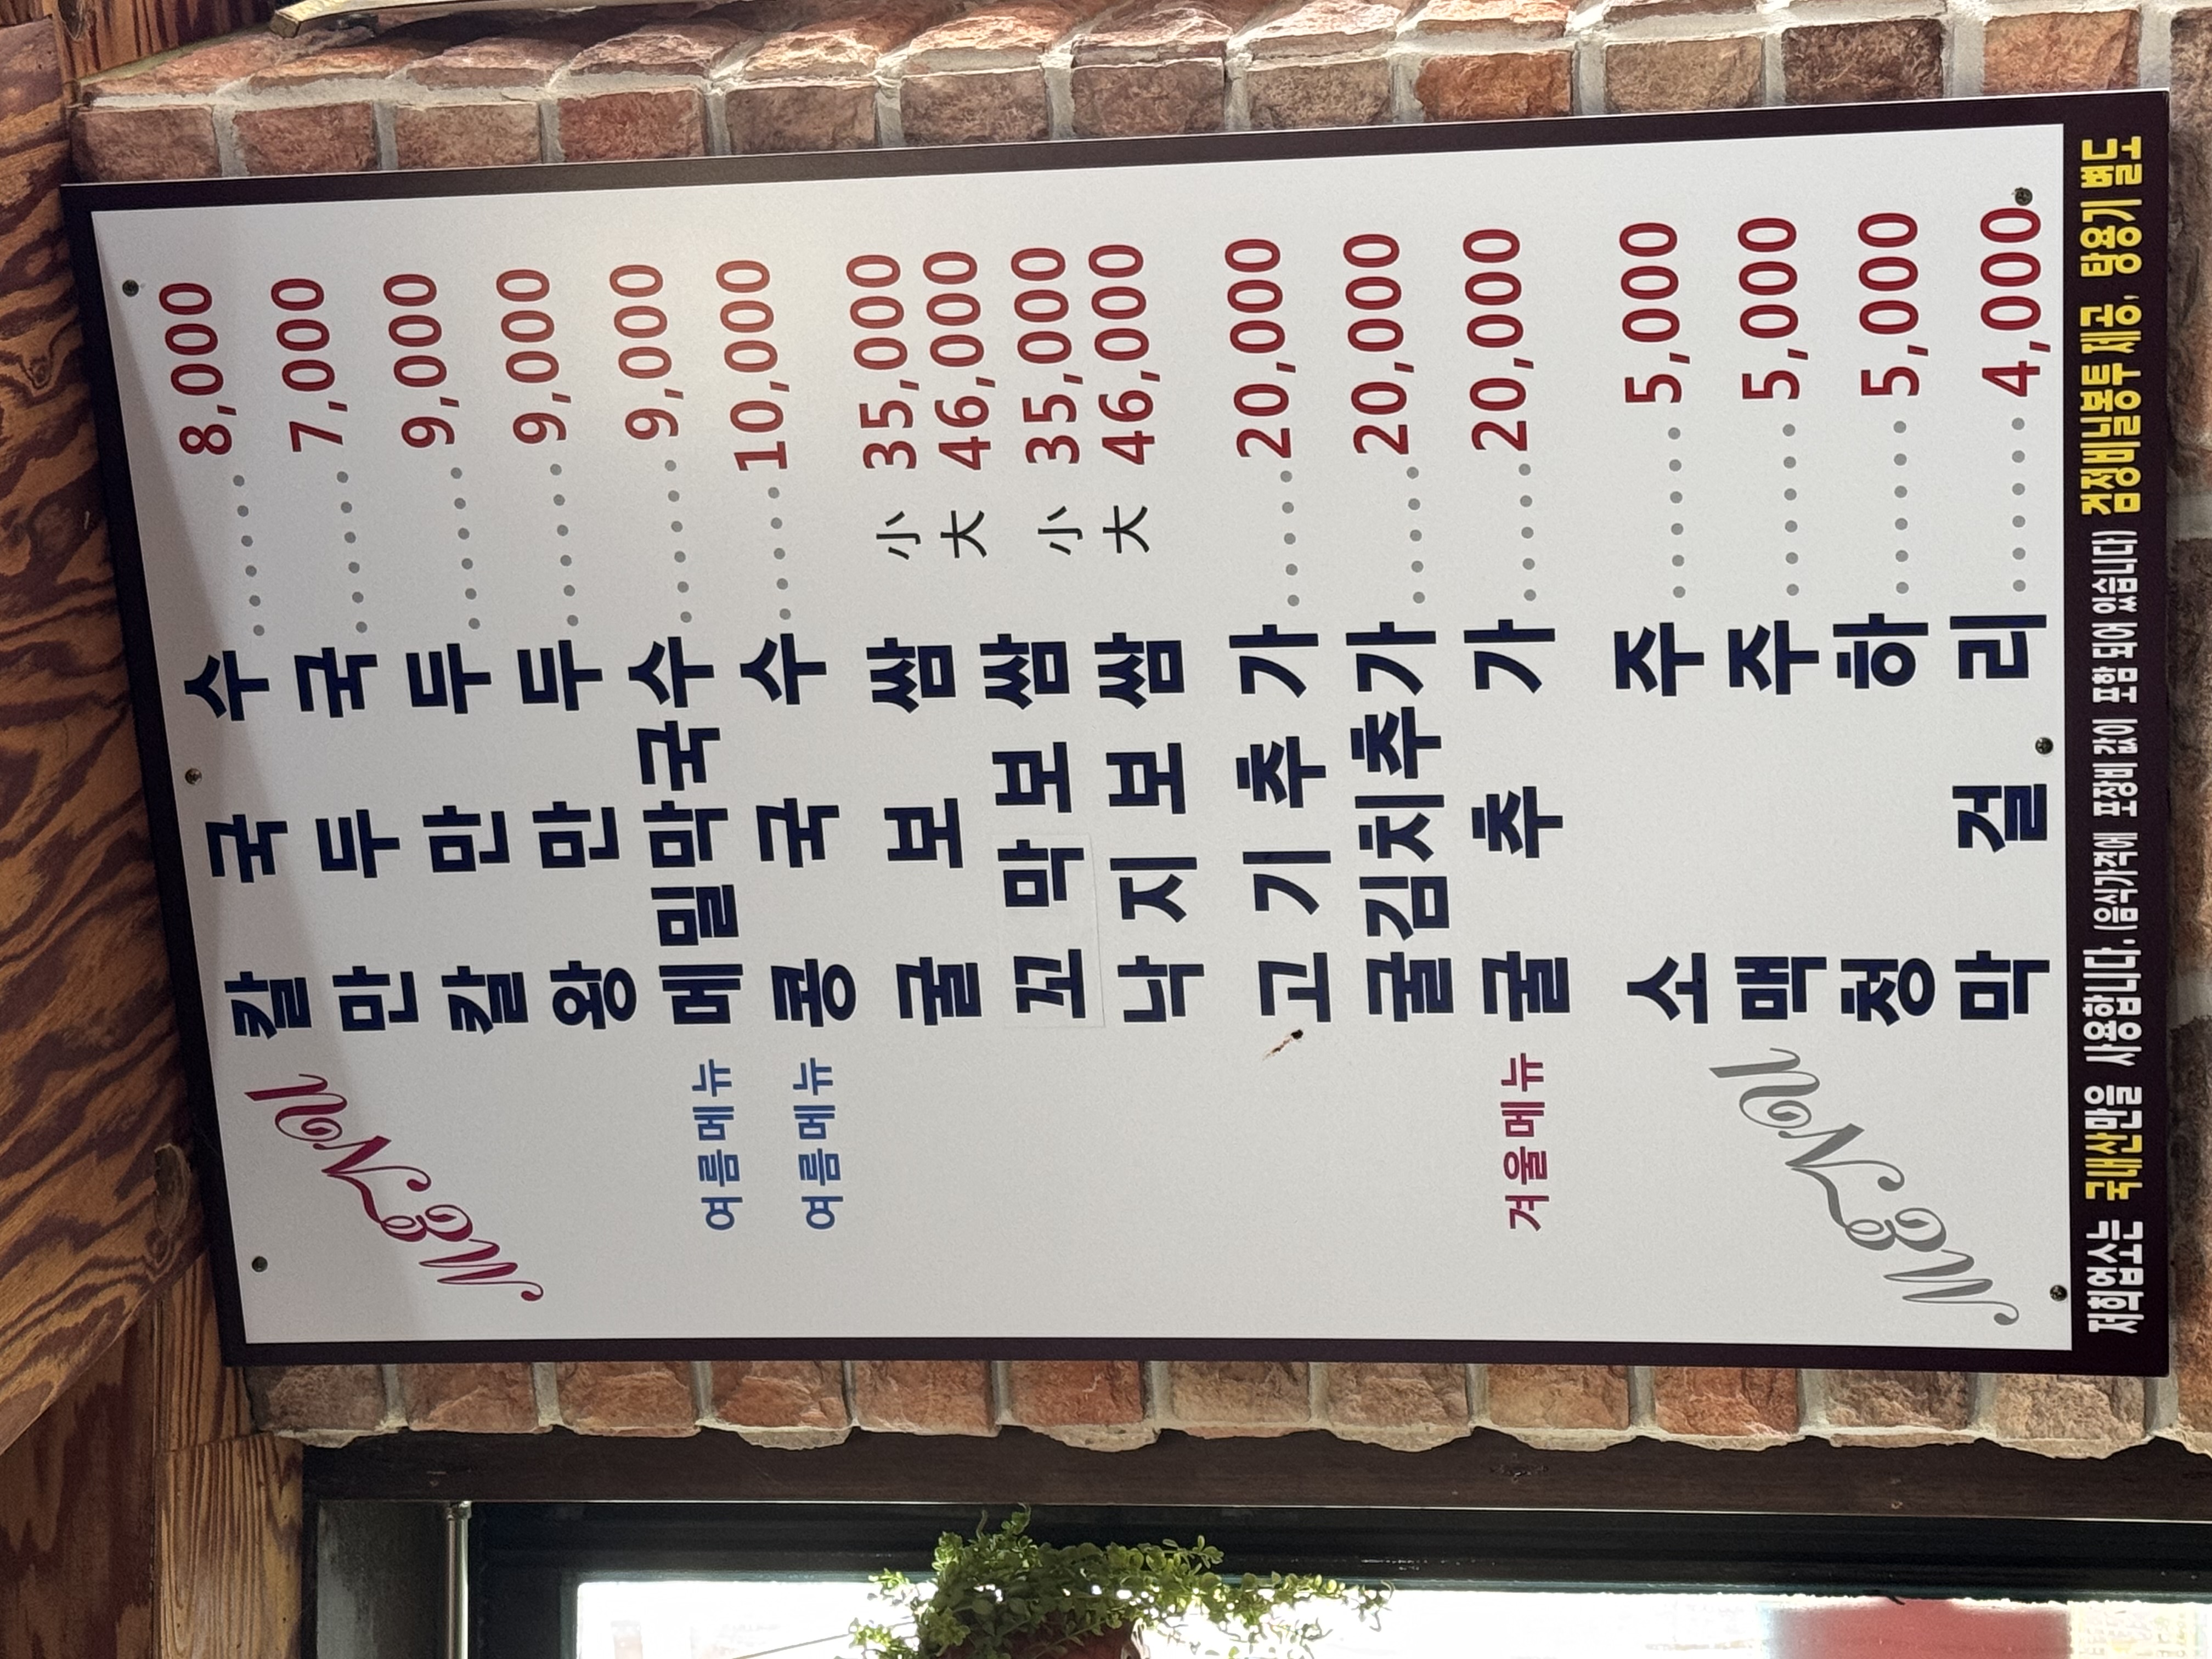 MENU
칼 국 수 8,000
만 두 국 7,000
칼 만 두 9,000
왕 만 두 9,000
여름메뉴 메밀막국수 9,000
여름메뉴 콩 국 수 10,000
굴 보 쌈 小 35,000
大 46,000
꼬 막 보 쌈
낙 지 보 쌈 小 35,000
大 46,000
고 기 추 가 20,000
굴김치추가 20,000
겨울메뉴 굴 추 가 20,000
MENU
소 주 5,000
맥 주 5,000
청 하 5,000
막 걸 리 4,000
저희업소는 국내산만을 사용합니다. (음식가격에 포장비 값이 포함 되어 있습니다) 검정비닐봉투 제공, 탕용기 별도